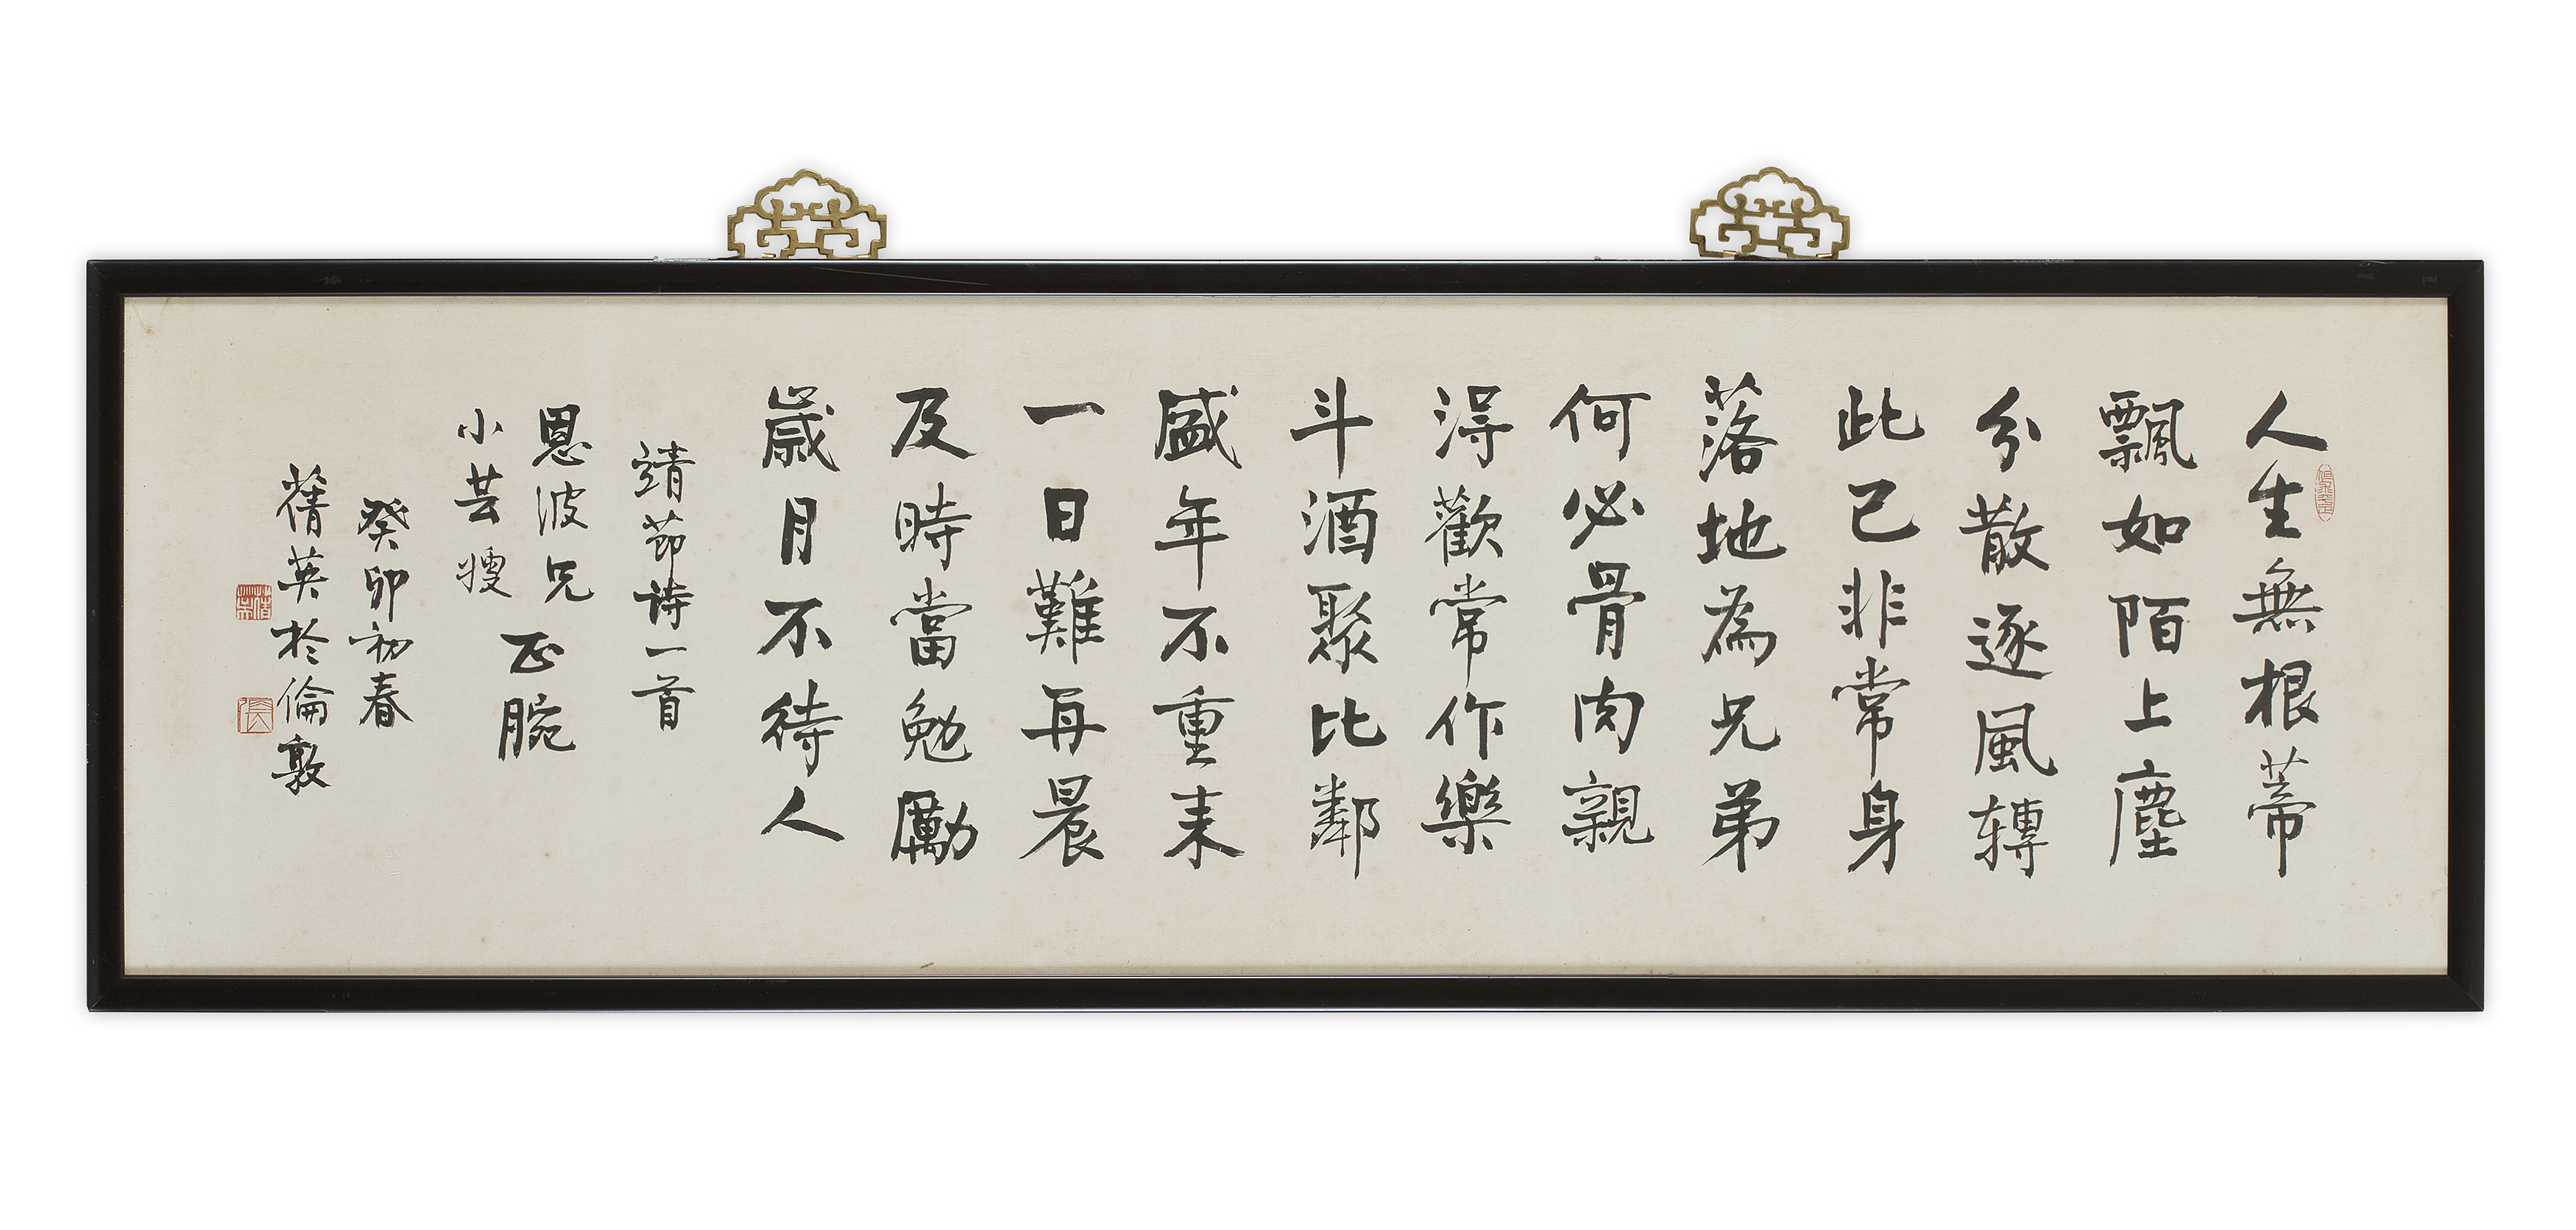 人生無根蒂
飄如陌上塵
分散逐風轉
此已非常身
落地為兄弟
何必骨肉親
得歡常作樂
斗酒聚比鄰
盛年不重来
一日難再晨
及時當勉勵
歲月不待人
靖節诗一首
恩波兄
小芸嫂
正腕
癸卯初春
蒨英於倫敦